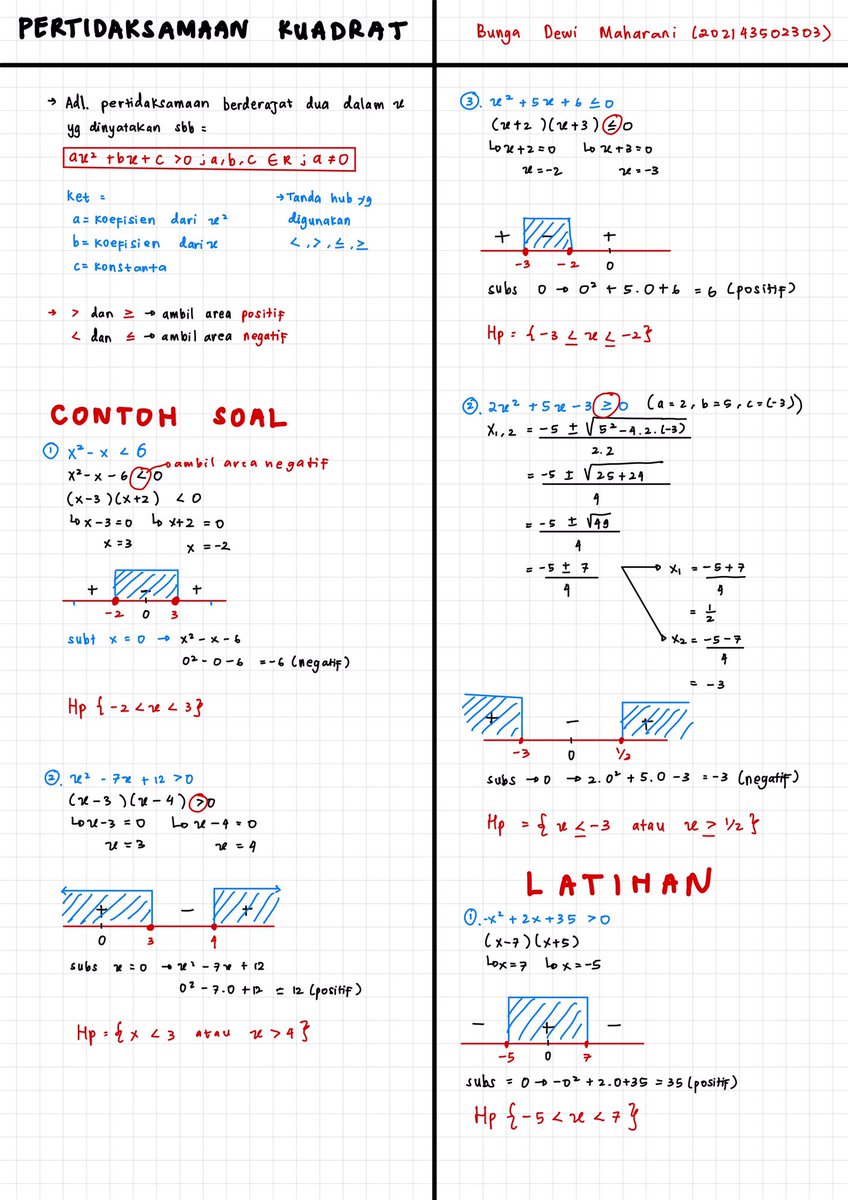 PERTIDAKSAMAAN KUADRAT
Bunga Dewi Maharani (202143502303)
→ Adl. pertidaksamaan berderajat dua dalam x
yg dinyatakan sbb =
ax² + bx + c > 0 ; a, b, c ∈ R ; a ≠ 0
Ket =
a = koefisien dari x²
b = koefisien dari x
c = konstanta
→ Tanda hub yg
digunakan
<, >, ≤, ≥
→ > dan ≥ → ambil area positif
< dan ≤ → ambil area negatif
CONTOH SOAL
① x² - x < 6
x² - x - 6 < 0 → ambil area negatif
(x-3)(x+2) < 0
↳ x-3 = 0 ↳ x+2 = 0
x = 3 x = -2
+ - +
-2 0 3
subt x = 0 → x² - x - 6
0² - 0 - 6 = -6 (negatif)
Hp {-2 < x < 3}
②. x² - 7x + 12 > 0
(x-3)(x-4) > 0
↳ x-3 = 0 ↳ x-4 = 0
x = 3 x = 4
+ - +
0 3 4
subs x = 0 → x² - 7x + 12
0² - 7.0 + 12 = 12 (positif)
Hp = {x < 3 atau x > 4}
③. x² + 5x + 6 ≤ 0
(x+2)(x+3) ≤ 0
↳ x+2 = 0 ↳ x+3 = 0
x = -2 x = -3
+ - +
-3 -2 0
subs 0 → 0² + 5.0 + 6 = 6 (positif)
Hp = {-3 ≤ x ≤ -2}
②. 2x² + 5x - 3 ≥ 0 (a = 2, b = 5, c = (-3))
x1,2 = -5 ± √5² - 4.2.(-3)
2.2
= -5 ± √25 + 24
4
= -5 ± √49
4
= -5 ± 7
4
→ x1 = -5 + 7
4
= 1/2
x2 = -5 - 7
4
= -3
+ - +
-3 0 1/2
subs → 0 → 2.0² + 5.0 - 3 = -3 (negatif)
Hp = {x ≤ -3 atau x ≥ 1/2}
LATIHAN
①. -x² + 2x + 35 > 0
(x-7)(x+5)
↳ x = 7 ↳ x = -5
- + -
-5 0 7
subs = 0 → -0² + 2.0 + 35 = 35 (positif)
Hp {-5 < x < 7}